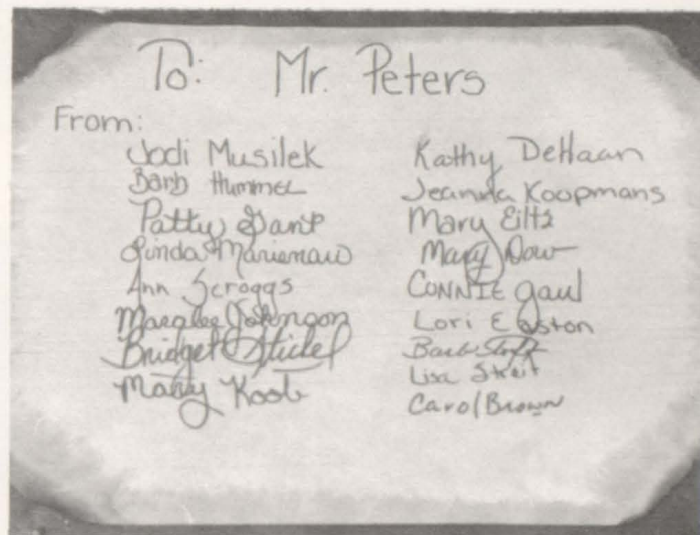 To: Mr. Peters
From:
Jodi Musilek
Barb Hummel
Patty Gant
Linda
Ann Scroggs
Maralee Johnson
Bridget Stickel
Mary Koob
Kathy DeHaan
Jeanna Koopmans
Mary Eilts
Mary Dow
CONNIE Gaul
Lori Easton
Barb
Lisa Streit
Carol Brown